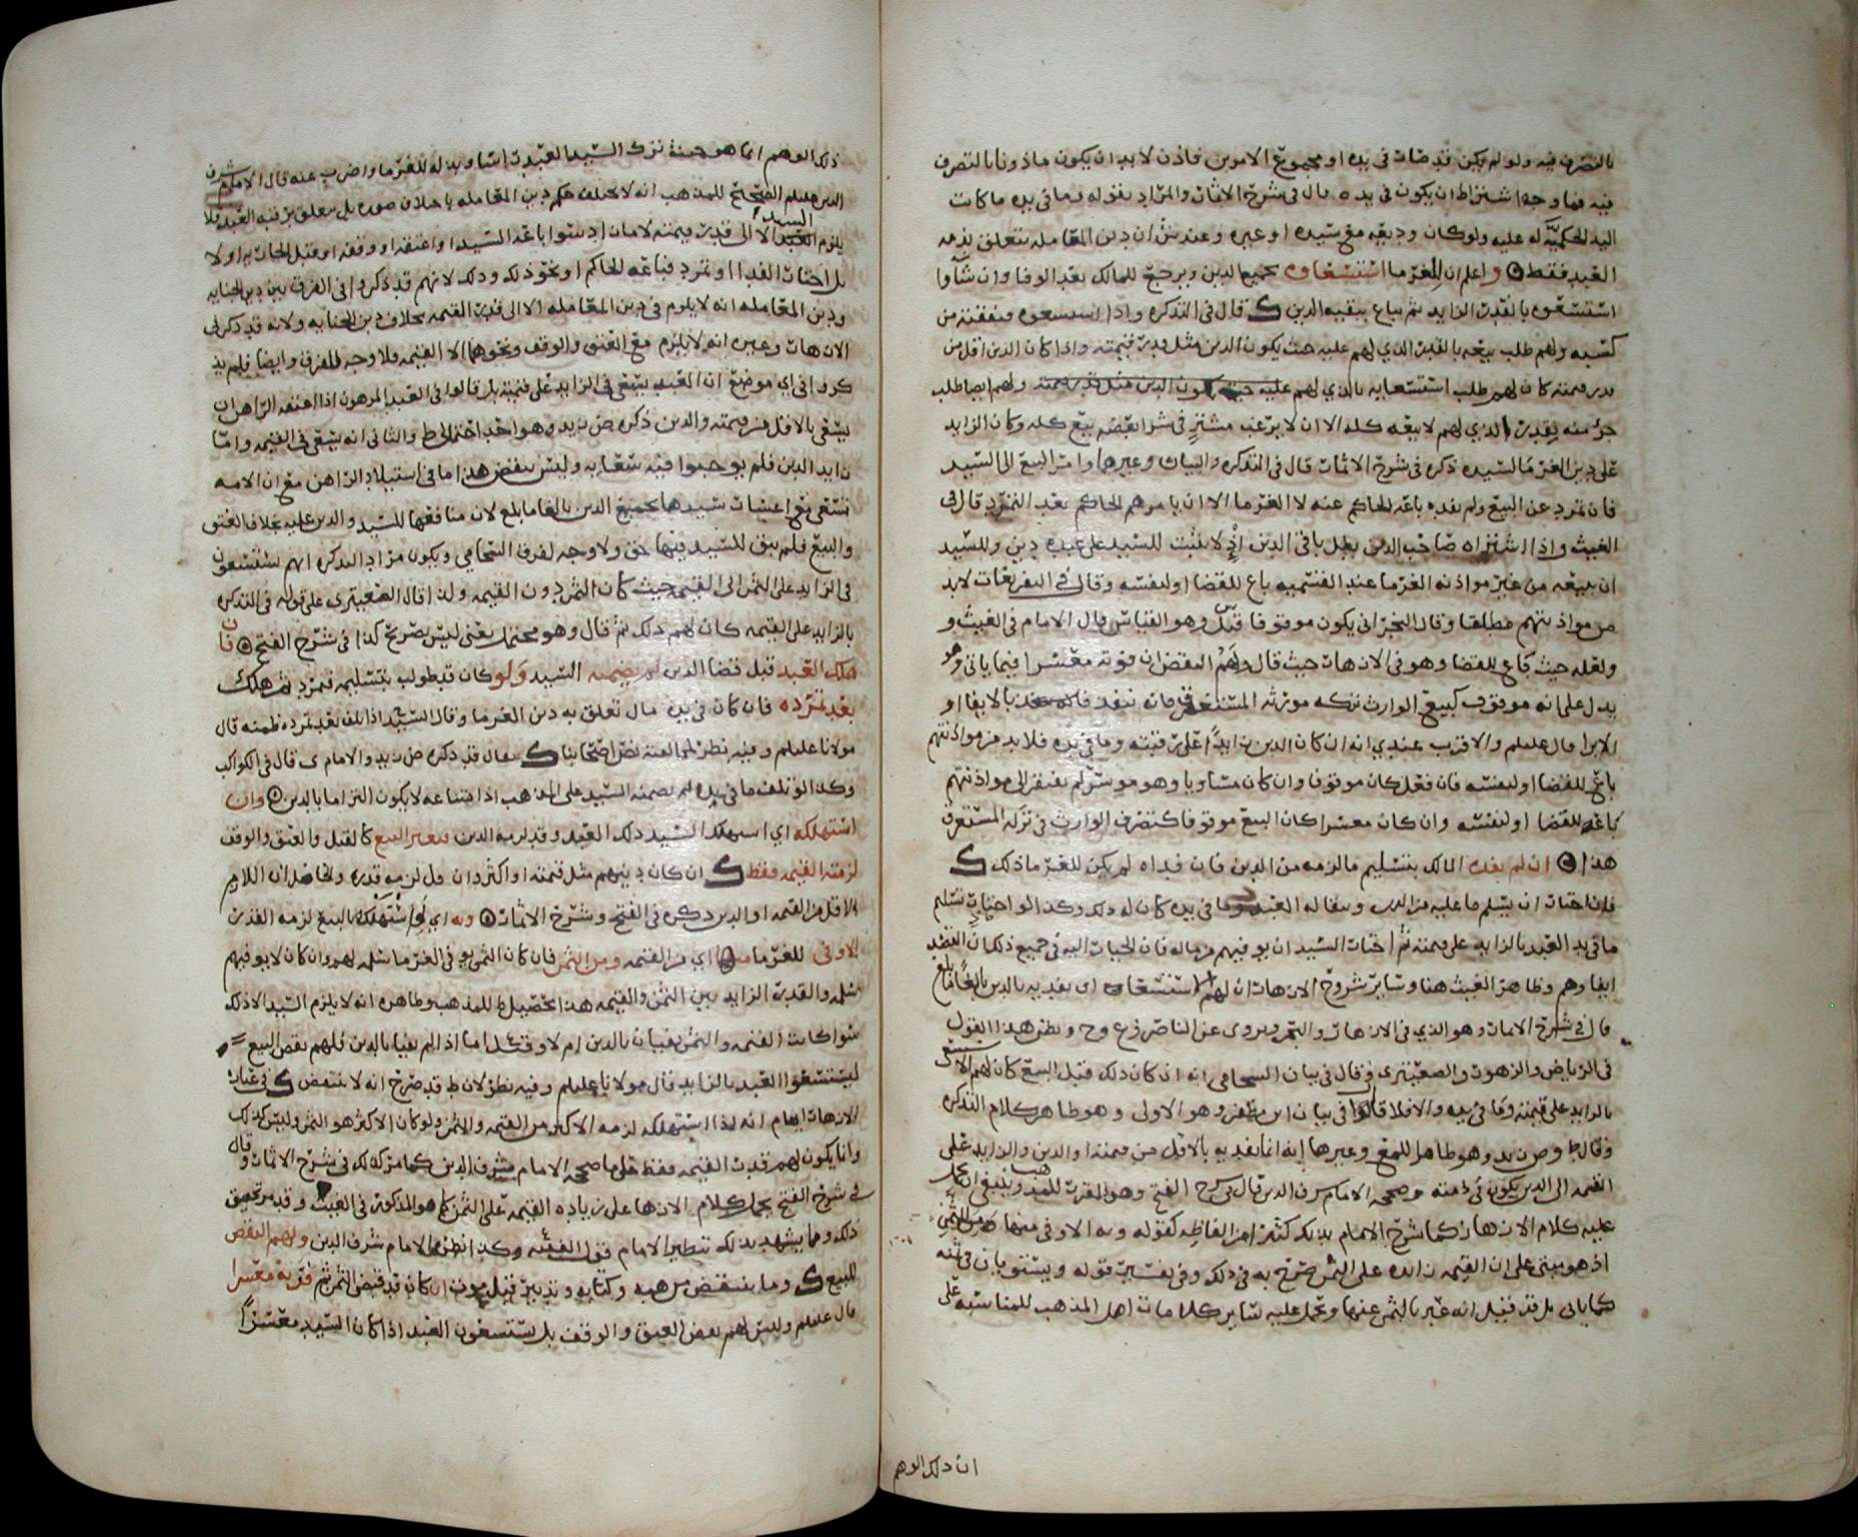 بالتصرف فيه ولو لم يكن قد صار في يده او مجموع الامرين فاذن لا بد ان يكون ماذونا بالتصرف
فيه فما وجه اشتراط ان يكون في يده قال في شرح الاثمار والمراد بقوله وما في يده ما كانت
اليد الحكمية له عليه ولو كان وديعه مع سيده او غيره وعند ش ان دين المعامله يتعلق بذمه
العبد فقط واعلم ان للغرما استسعاوه بجميع الدين ويرجع للمالك بعد الوفا وان شاوا
استسعوه بالقدر الزايد ثم يباع ببقيه الدين ك قال في التذكره واذا استسعوه فنفقته من
كسبه ولهم طلب بيعه بالقدر الذي لهم عليه حيث يكون الدين مثل قدر قيمته واذا كان الدين اقل من
قدر قيمته كان لهم طلب استسعايه بالذي لهم عليه ولهم ايضا طلب
جزء منه بقدر الذي لهم لا بيعه كله الا ان لا يرغب مشتر في شرا بعضه بيع كله وكان الزايد
على دين الغرما لسيده ذكره في شرح الاثمار قال في التذكره والبيان وغيرهما وامر البيع الى السيد
فان تمرد عن البيع ولم يفده باعه الحاكم عنه لا الغرما الا ان يامرهم الحاكم بعد التمرد قال في
الغيث واذا اشتراه صاحب الدين بطل باقي الدين اذ لا يثبت للسيد على عبده دين وللسيد
ان يبيعه من غير مواذنه الغرما عند باع للقضا او لنفسه وقال في التفريعات لا بد
من مواذنتهم مطلقا وقال النجراني يكون موقوفا قيل س وهو القياس قال الامام في الغيث و
ولعله حيث باع للقضا وهو في الازهار حيث قال ولهم النقض ان فوته معسرا فيما ياتي وهو
يدل على انه موقوف كبيع الوارث تركه مورثه المستغرقه فانه ينفذ بالايفا او
الابرا قال عليلم والاقرب عندي انه ان كان الدين زايدا على رقبته وما في يده فلا بد من مواذنتهم
باعه للقضا او لنفسه فان فعل كان موقوفا وان كان مساويا وهو موسر لم يفتقر الى مواذنتهم
باعه للقضا او لنفسه وان كان معسرا كان البيع موقوفا كتصرف الوارث في تركه المستغرق
هذا ان لم يفده المالك بتسليم ما لزمه من الدين فان فداه لم يكن للغرما ذلك ك
فان اختار ان يسلم ما عليه من الدين ويبقا له العبد وما في يده كان له ذلك وكذا لو اختار تسليم
ما في يد العبد بالزايد على قيمته ثم اختار السيد ان يوفيهم من ماله فان الخيار اليه في جميع ذلك ان القصد
ايفاوهم وظاهر الغيث هنا وساير شروح الازهار ان لهم استسعاوه ان بفديه بالدين بالغا ما بلغ
قال في شرح الاثمار وهو الذي في الازهار والبحر ويروى عن الناصر وع وح ونظر هذا القول
في الرياض والزهور والصعيتري وقال في بيان السحامي انه ان كان ذلك قبل البيع كان لهم الاستسعا
بالزايد على قيمته وما في يده والا فلا قالوا في بيان ابن مظفر وهو الاولى وهو ظاهر كلام التذكره
وقال ط وص زيد وهو ظاهر اللمع وغيرها انه انما يفديه بالاقل من قيمته او الدين والزايد على
القيمه الى الدين يكون في ذمته وصححه الامام شرف الدين قال في شرح الفتح وهو المقرر للمذهب وينبغي ان يحمل
عليه كلام الازهار كما شرح الامام بذلك كثيرا من الفاظه كقوله وبه الاوفى منها ومن الثمن
اذ هو مبني على ان القيمه زايده على الثمن صرح به في ذلك وفي تفسير قوله ويستويان في ثمنه
كما ياتي بل قد قيل انه عبر بالثمن عنها وتحمل عليه ساير كلامات اهل المذهب للمناسبه على
ان ذلك الوهم
ذلك الوهم انما هو حيث ترك السيد العبد ايثارا وبذله للغرما واضرب عنه قال الامام شرف
الدين عليلم الصحيح للمذهب انه لا يختلف حكم دين المعامله باختلاف صوره بل يتعلق برقبه العبد فلا
يلزم السيد الا الى قدر قيمته لامان اد سوا باعه السيد او اعتقه او وقفه او قتل الجاني او لا
بل اختار الفدا او تمرد فباعه الحاكم او نحو ذلك وذلك لانهم قد ذكروا في الفرق بين دين الجنايه
ودين المعامله انه لا يلزم في دين المعامله الا الى قدر القيمه بخلاف دين الجنايه ولانه قد ذكر في
الازهار وغيره انه لا يلزم مع العتق والوقف ونحوهما الا القيمه فلا وجه للفرق وايضا فلم يذ
كروا في اي موضع ان العبد يسعى في الزايد على قيمته بل قالوا في العبد المرهون اذا اعتقه الراهن ان
يسعى بالاقل من قيمته والدين ذكره ص زيد وهو احد احتمالي ط والثاني انه يسعى في القيمه واما
زايد الدين فلم يوجبوا فيه سعايه وليس ينقض هذا ما في استيلاد الراهن مع ان الامه
تسعى مع اعسار سيدها بجميع الدين بالغا ما بلغ لان منافعها للسيد والدين عليه بخلاف العتق
والبيع فلم يبق للسيد فيها حق ولا وجه لفرق السحامي ويكون مراد التذكره انهم يستسعون
في الزايد على الثمن الى القيمه حيث كان الثمن دون القيمه ولذا قال الصعيتري على قوله في التذكره
بالزايد على القيمه كان لهم ذلك ثم قال وهو محتمل يعني ليس بصريح كذا في شرح الفتح فان
هلك العبد قبل قضا الدين لم يضمنه السيد ولو كان قد طولب بتسليمه فتمرد ثم هلك
بعد تمرده فان كان في يده مال تعلق به دين الغرما وقال السيد ح اذا تلف بعد تمرده ضمنه قال
مولانا عليلم وفيه نظر لمخالفته نص اصحابنا ك يقال قد ذكره ص زيد والامام ى قال في الكواكب
وكذا لو تلف ما في يده لم يضمنه السيد على المذهب اذ امتناعه لا يكون التزاما بالدين وان
استهلكه اي استهلك السيد ذلك العبد وقد لزمه الدين بغير البيع كالقتل والعتق والوقف
لزمته القيمه فقط ك ان كان دينهم مثل قيمته او اكثر وان قل لزمه قدره والحاصل ان اللازم
الاقل من القيمه او الدين ذكره في الفتح وشرح الاثمار وبه اي لو استهلكه بالبيع لزمه القدر
الاوفى للغرما منها اي من القيمه ومن الثمن فان كان الثمن يوفي الغرما سلمه لهم وان كان لا يوفيهم
سلمه والقدر الزايد بين الثمن والقيمه هذا تحصيل ط للمذهب وظاهره انه لا يلزم السيد الا ذلك
سوا كانت القيمه والثمن يفيان بالدين ام لا وقيل اما اذا لم يفيا بالدين فلهم نقض البيع
ليستسعوا العبد بالزايد قال مولانا عليلم وفيه نظر لان ط قد صرح انه لا ينتقض ك في عباره
الازهار ايهام انه اذا استهلكه لزمه الاكثر من القيمه والثمن ولو كان الاكثر هو الثمن وليس كذلك
وانما يكون لهم قدر القيمه فقط على ما صححه الامام شرف الدين كما مر كذلك في شرح الاثمار وقال
في شرح الفتح يحمل كلام الازهار على زياده القيمه على الثمن كما هو المذكور في الغيث وقد مر تحقيق
ذلك ومما يشهد بذلك تنظير الامام قول الفقيه وكذا نظره الامام شرف الدين ولهم النقض
للبيع ك وما ينتقض من هبه وكتابه وتدبير قبل موت ان كان قد قبض الثمن ثم فوته معسرا
قال عليلم وليس لهم نقض العتق والوقف بل يستسعون العبد اذا كان السيد معسرا